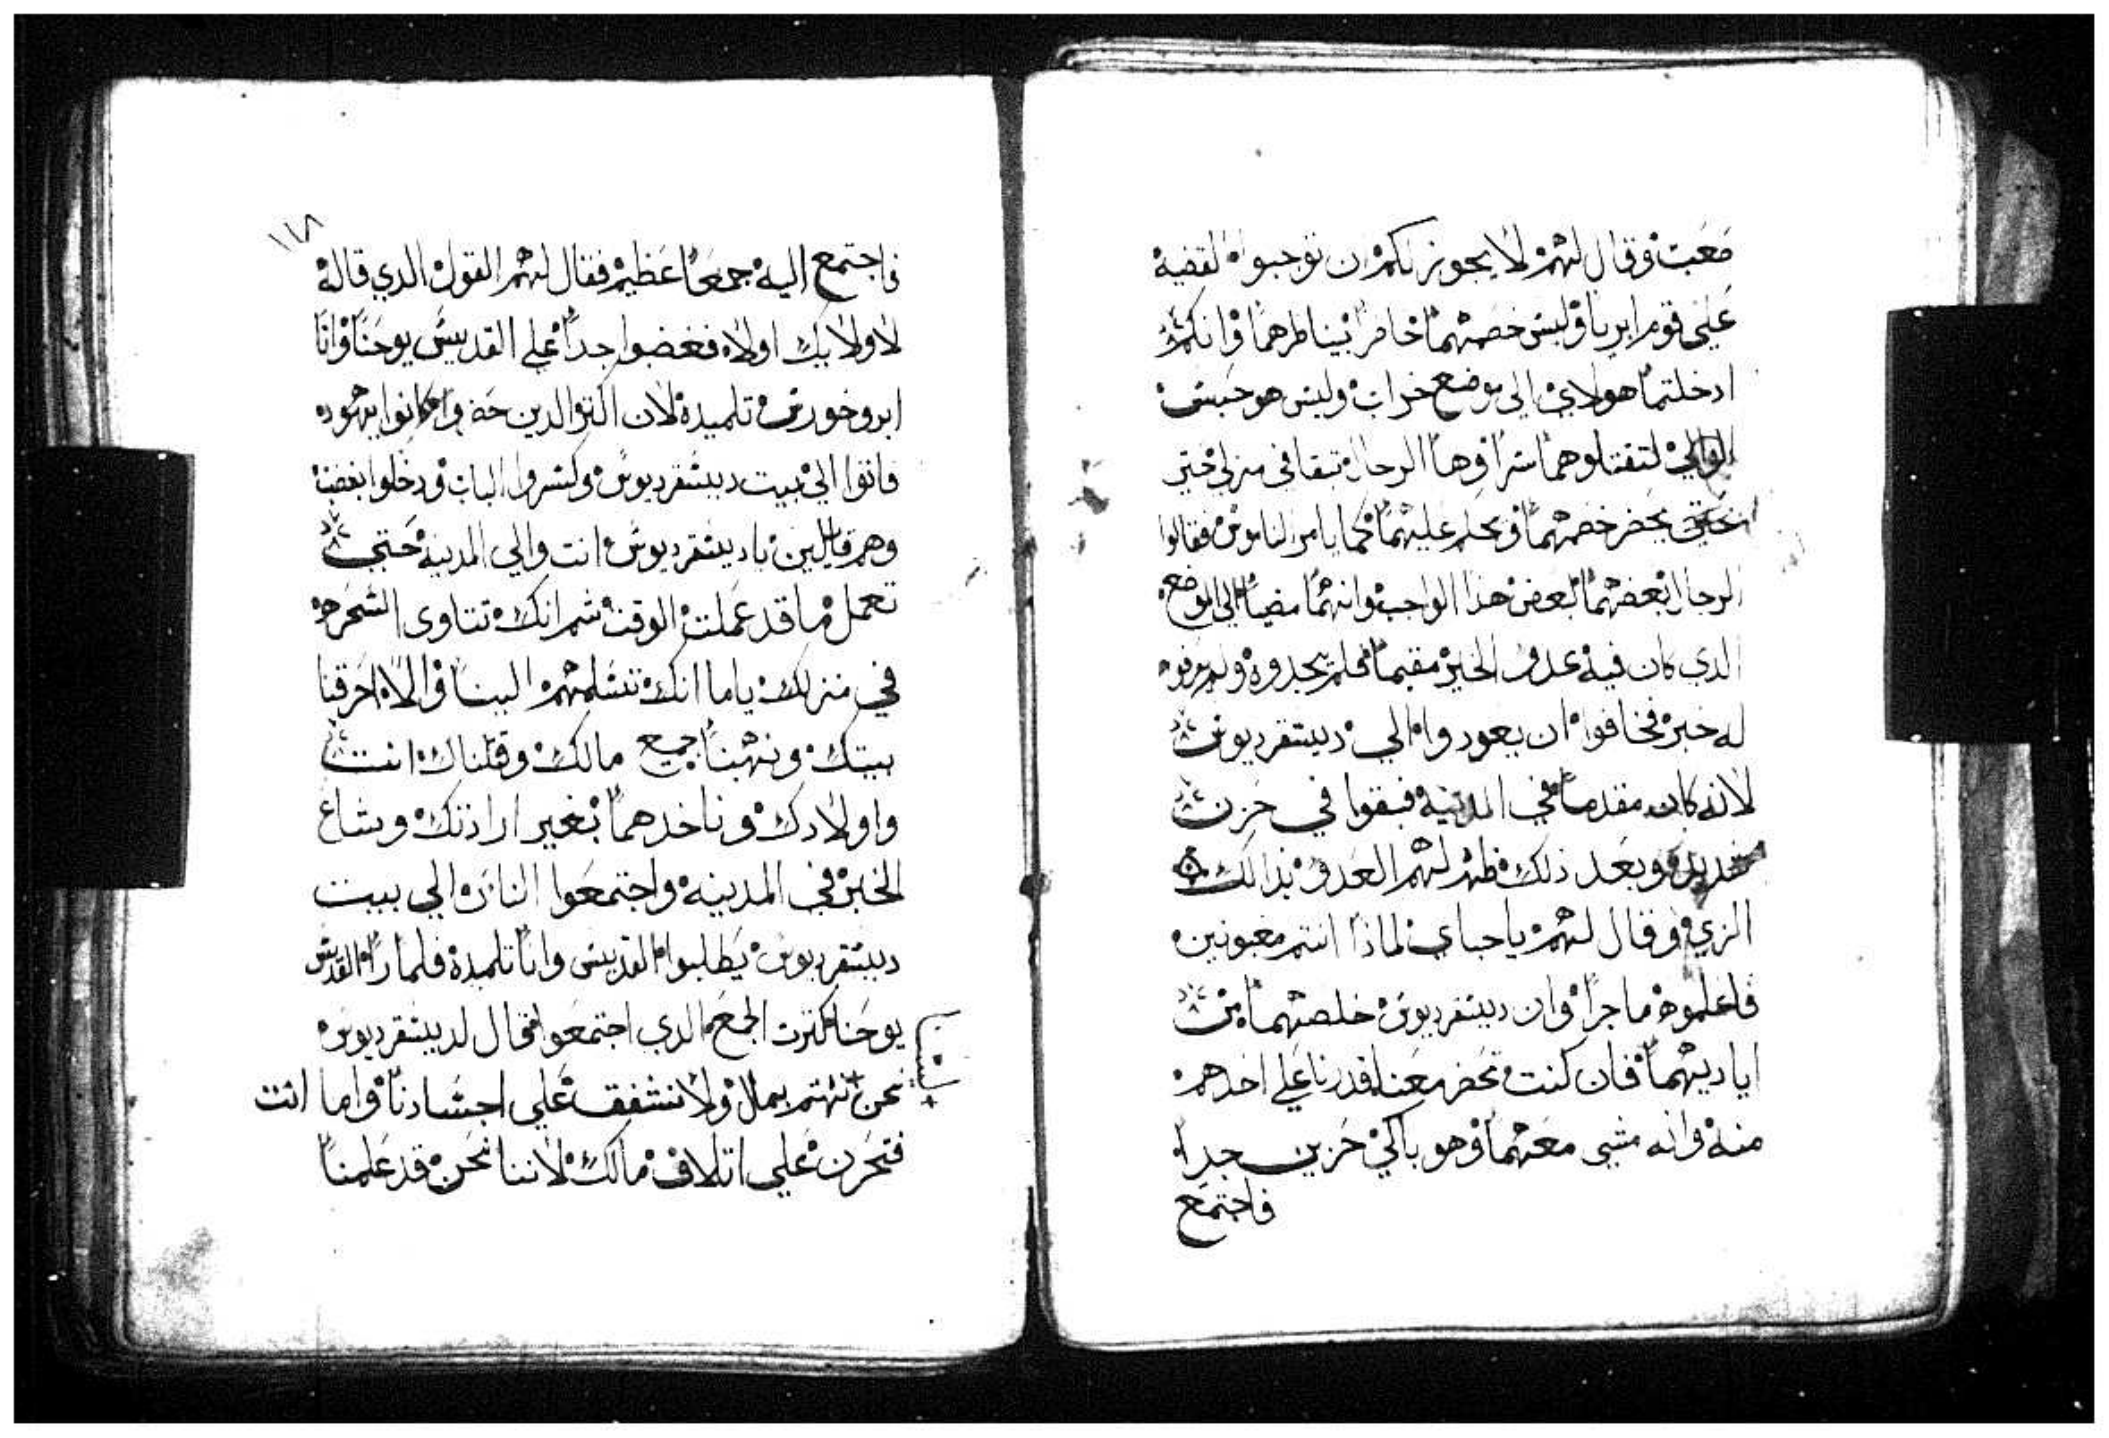 صعبت وقال لهم لا يجوز لكم ان توجبوا القضية
علي قوم ابريا وليس خصمهما حاضر يناظرهما وانكم
ادخلتما هولاي الي موضع خراب وليس هو حبس
الوالي لتقتلوهما سرا وها الرجال تبقا في منزلي
حتي يحضر خصمهما ويحكم عليهما كما يامر الناموس فقالوا
الرجال بعضهما لبعض هذا الواجب وانهما مضيا الي الموضع
الدي كان فيه عدو الخير مقيما فلم يجدوه ولم يعرفوا
له خبر فخافوا ان يعودوا الي ديسقرديوس
لانه كان مقدما في المدينه فبقوا في حزن
شديد وبعد ذلك ظهر لهم العدو بذالك
الزي وقال لهم يا حباي لماذا انتم مغبونين
فاعلموه ما جرا وان ديسقرديوس خلصهما من
اياديهما فان كنت تحضر معنا قدرنا علي اخدهم
منه وانه مشي معهما وهو باكي حزين جدا
فاجتمع
١١٨
فاجتمع اليه جمعا عظيم فقال لهم القول الدي قاله
لاولايك اولا فغضبوا جدا علي القديس يوحنا وانا
ابروخورس تلميده لان اكتر الدين حضروا كانوا يهود
فاتوا الي بيت ديسقرديوس وكسروا الباب ودخلوا بغضب
وهم قايلين يا ديسقرديوس انت والي المدينه حتي
تعمل ما قد عملت الوقت ثم انك تتاوي السحره
في منزلك ياما انك تسلمهم الينا والا احرقنا
بيتك ونهبنا جميع مالك وقتلناك انت
واولادك وناخدهما بغير ارادتك وشاع
الخبر في المدينه واجتمعوا الناس الي بيت
ديسقرديوس يطلبوا القديس وانا تلميده فلما راا القديس
يوحنا كترت الجمع الدي اجتمعوا فقال لديسقرديوس
نحن نهتم بمال ولا نشفق علي اجسادنا واما انت
فتحزن علي اتلاف مالك لاننا نحن قد علمنا